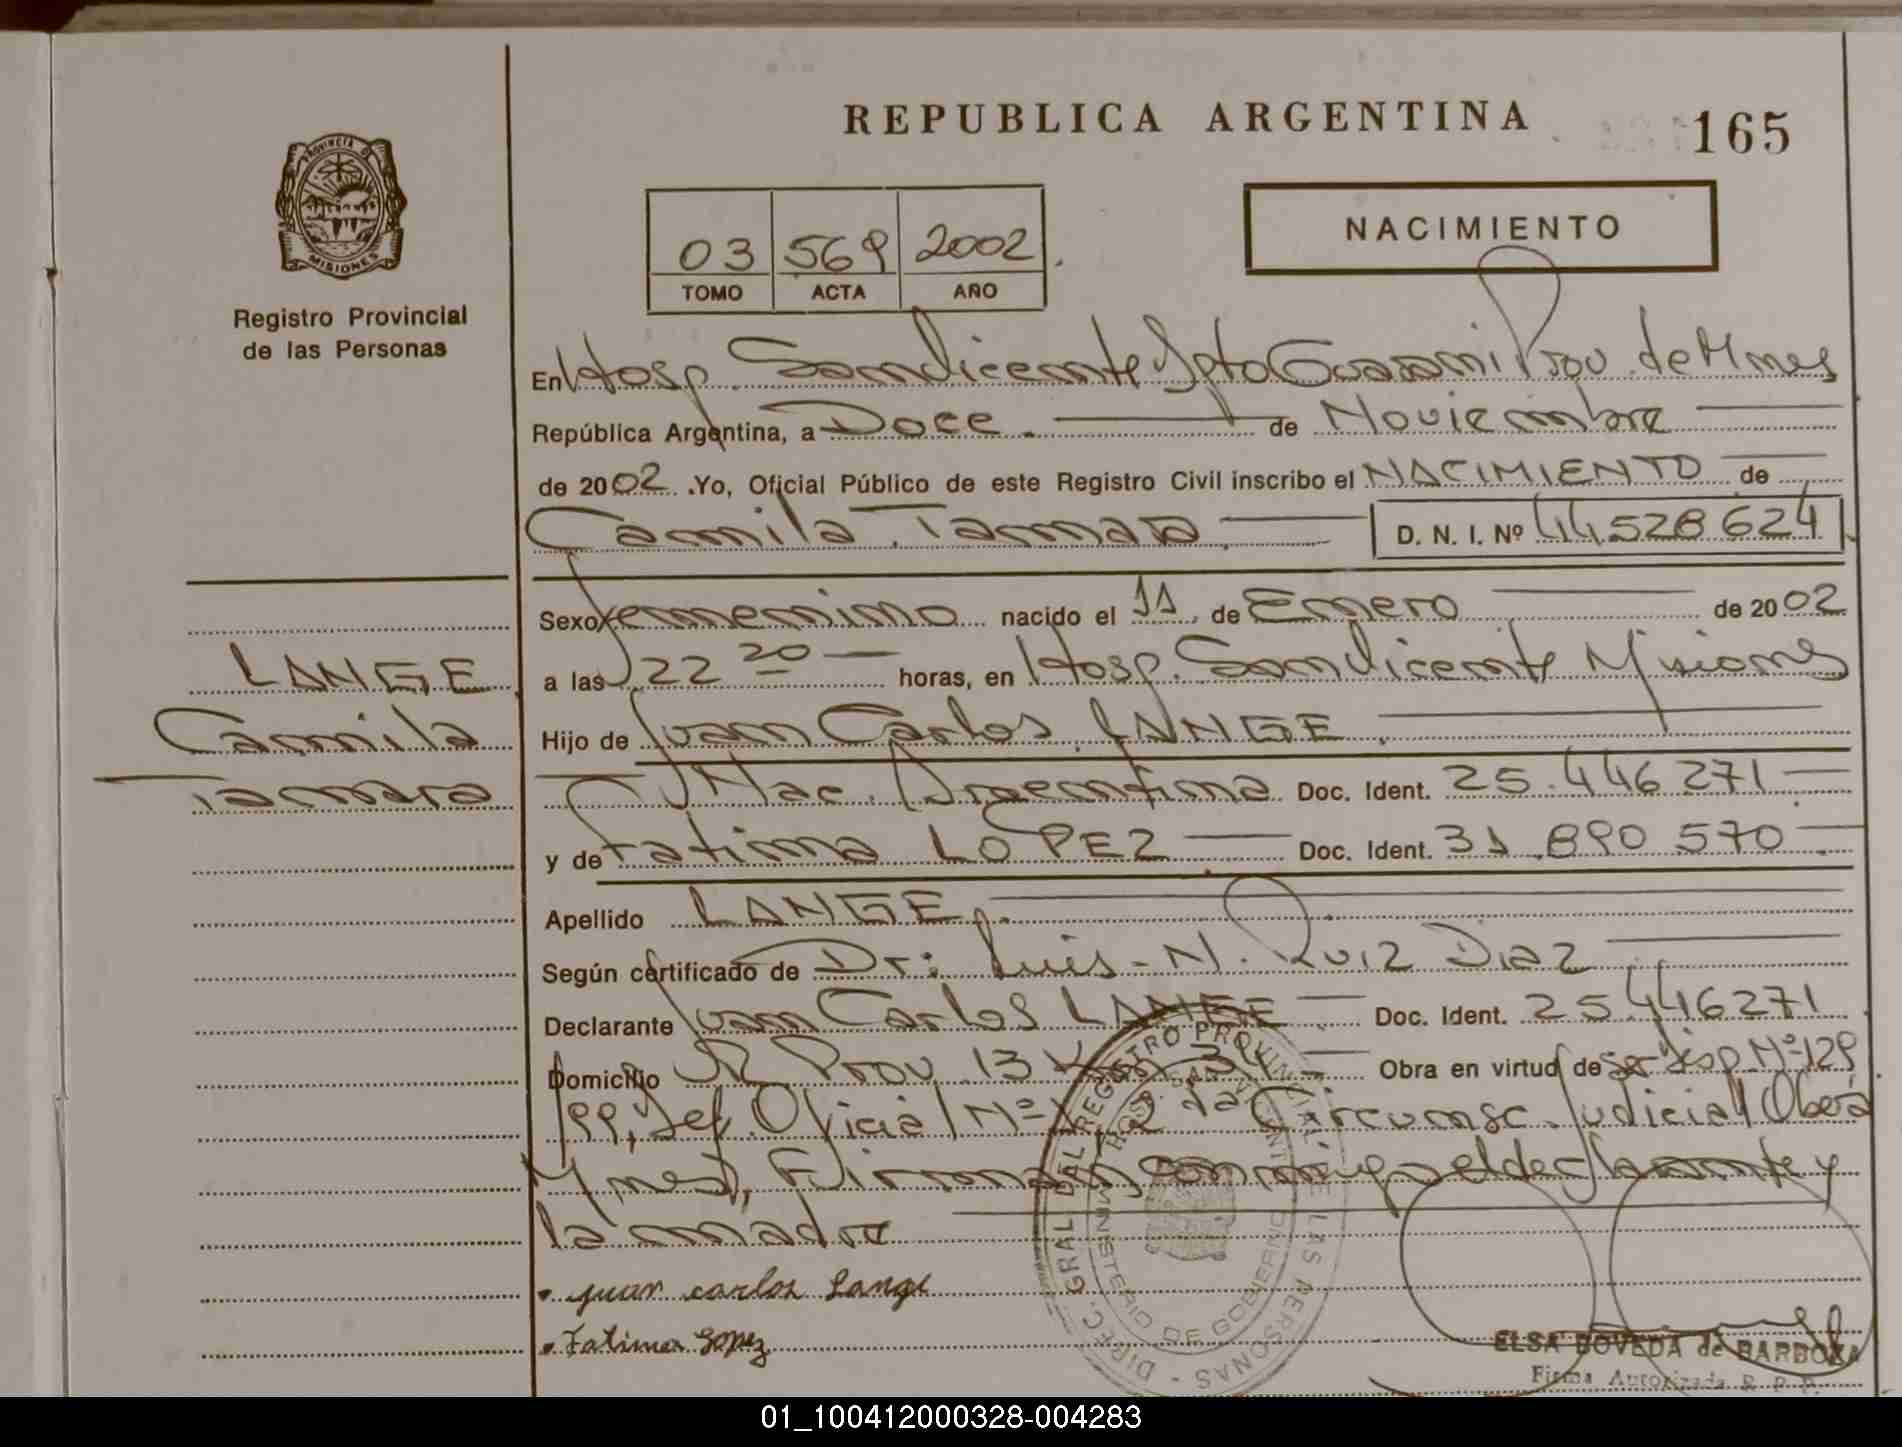 REPUBLICA ARGENTINA
165
PROVINCIA DE
MISIONES
Registro Provincial
de las Personas
03 569 2002
TOMO ACTA AÑO
NACIMIENTO
En Hosp. San Vicente Dpto Guarani Prov. de Mnes
República Argentina, a Doce de Noviembre
de 2002. Yo, Oficial Público de este Registro Civil inscribo el NACIMIENTO de
Camila Tamara D. N. I. Nº 44528624
Sexo femenino nacido el 11 de Enero de 2002
a las 22 20 horas, en Hosp. San Vicente Misiones
Hijo de Juan Carlos LANGE
Nac. Argentina Doc. Ident. 25.446271
y de Fatima LOPEZ Doc. Ident. 31.890570
Apellido LANGE
Según certificado de Dr: Luis N. Ruiz Diaz
Declarante Juan Carlos LANGE Doc. Ident. 25.446271
Domicilio R Prov. 13 Obra en virtud de Disp. Nº 129
/99, Def. Oficial Nº 2da Circunsc. Judicial Oberá
Mnes), Firman conmigo el declarante y
la madre
juan carlos Lange
Fatima Lopez
LANGE
Camila
Tamara
DIREC. GRAL. DEL REGISTRO PROVINCIAL DE LAS PERSONAS
MINISTERIO DE GOBIERNO
HOSP. SAN VICENTE
ELSA BOVEDA de BARBOZA
Firma Autorizada R. P. P.
01_100412000328-004283